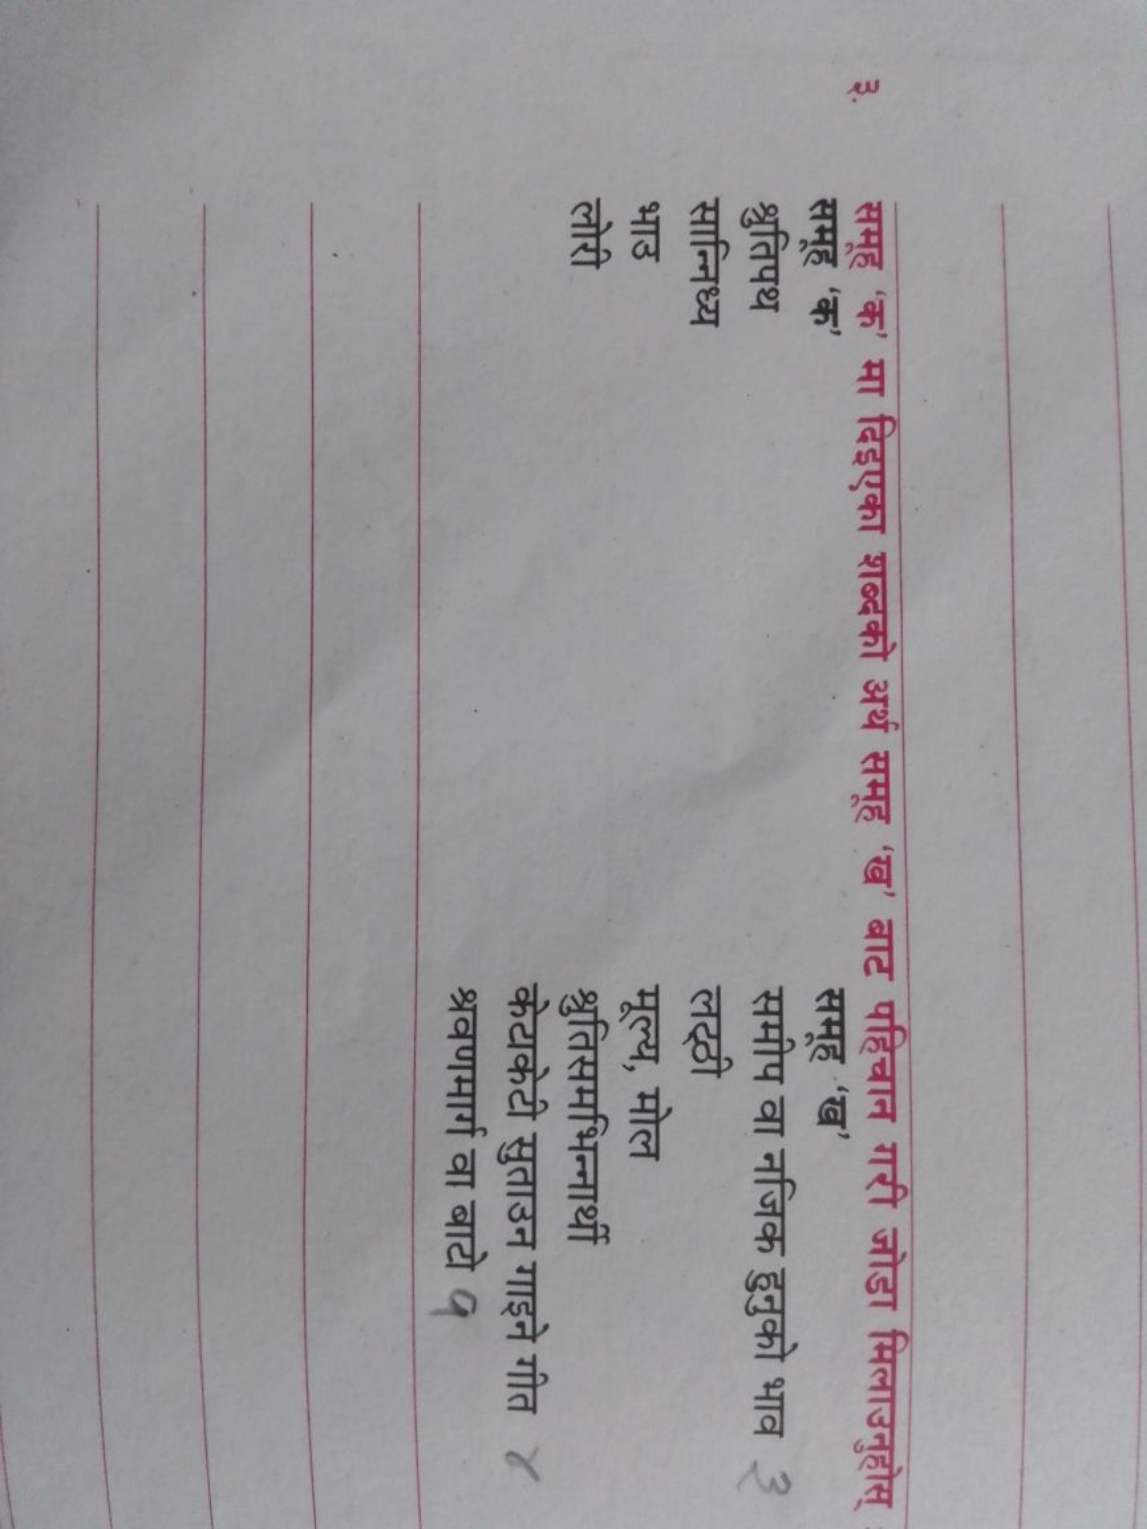 ३. समूह 'क' मा दिइएका शब्दको अर्थ समूह 'ख' बाट पहिचान गरी जोडा मिलाउनुहोस्
समूह 'क' समूह 'ख'
श्रुतिपथ समीप वा नजिक हुनुको भाव ३
सान्निध्य लट्ठी
भाउ मूल्य, मोल
लोरी श्रुतिसमभिन्नार्थी
केटाकेटी सुताउन गाइने गीत ४
श्रवणमार्ग वा बाटो १